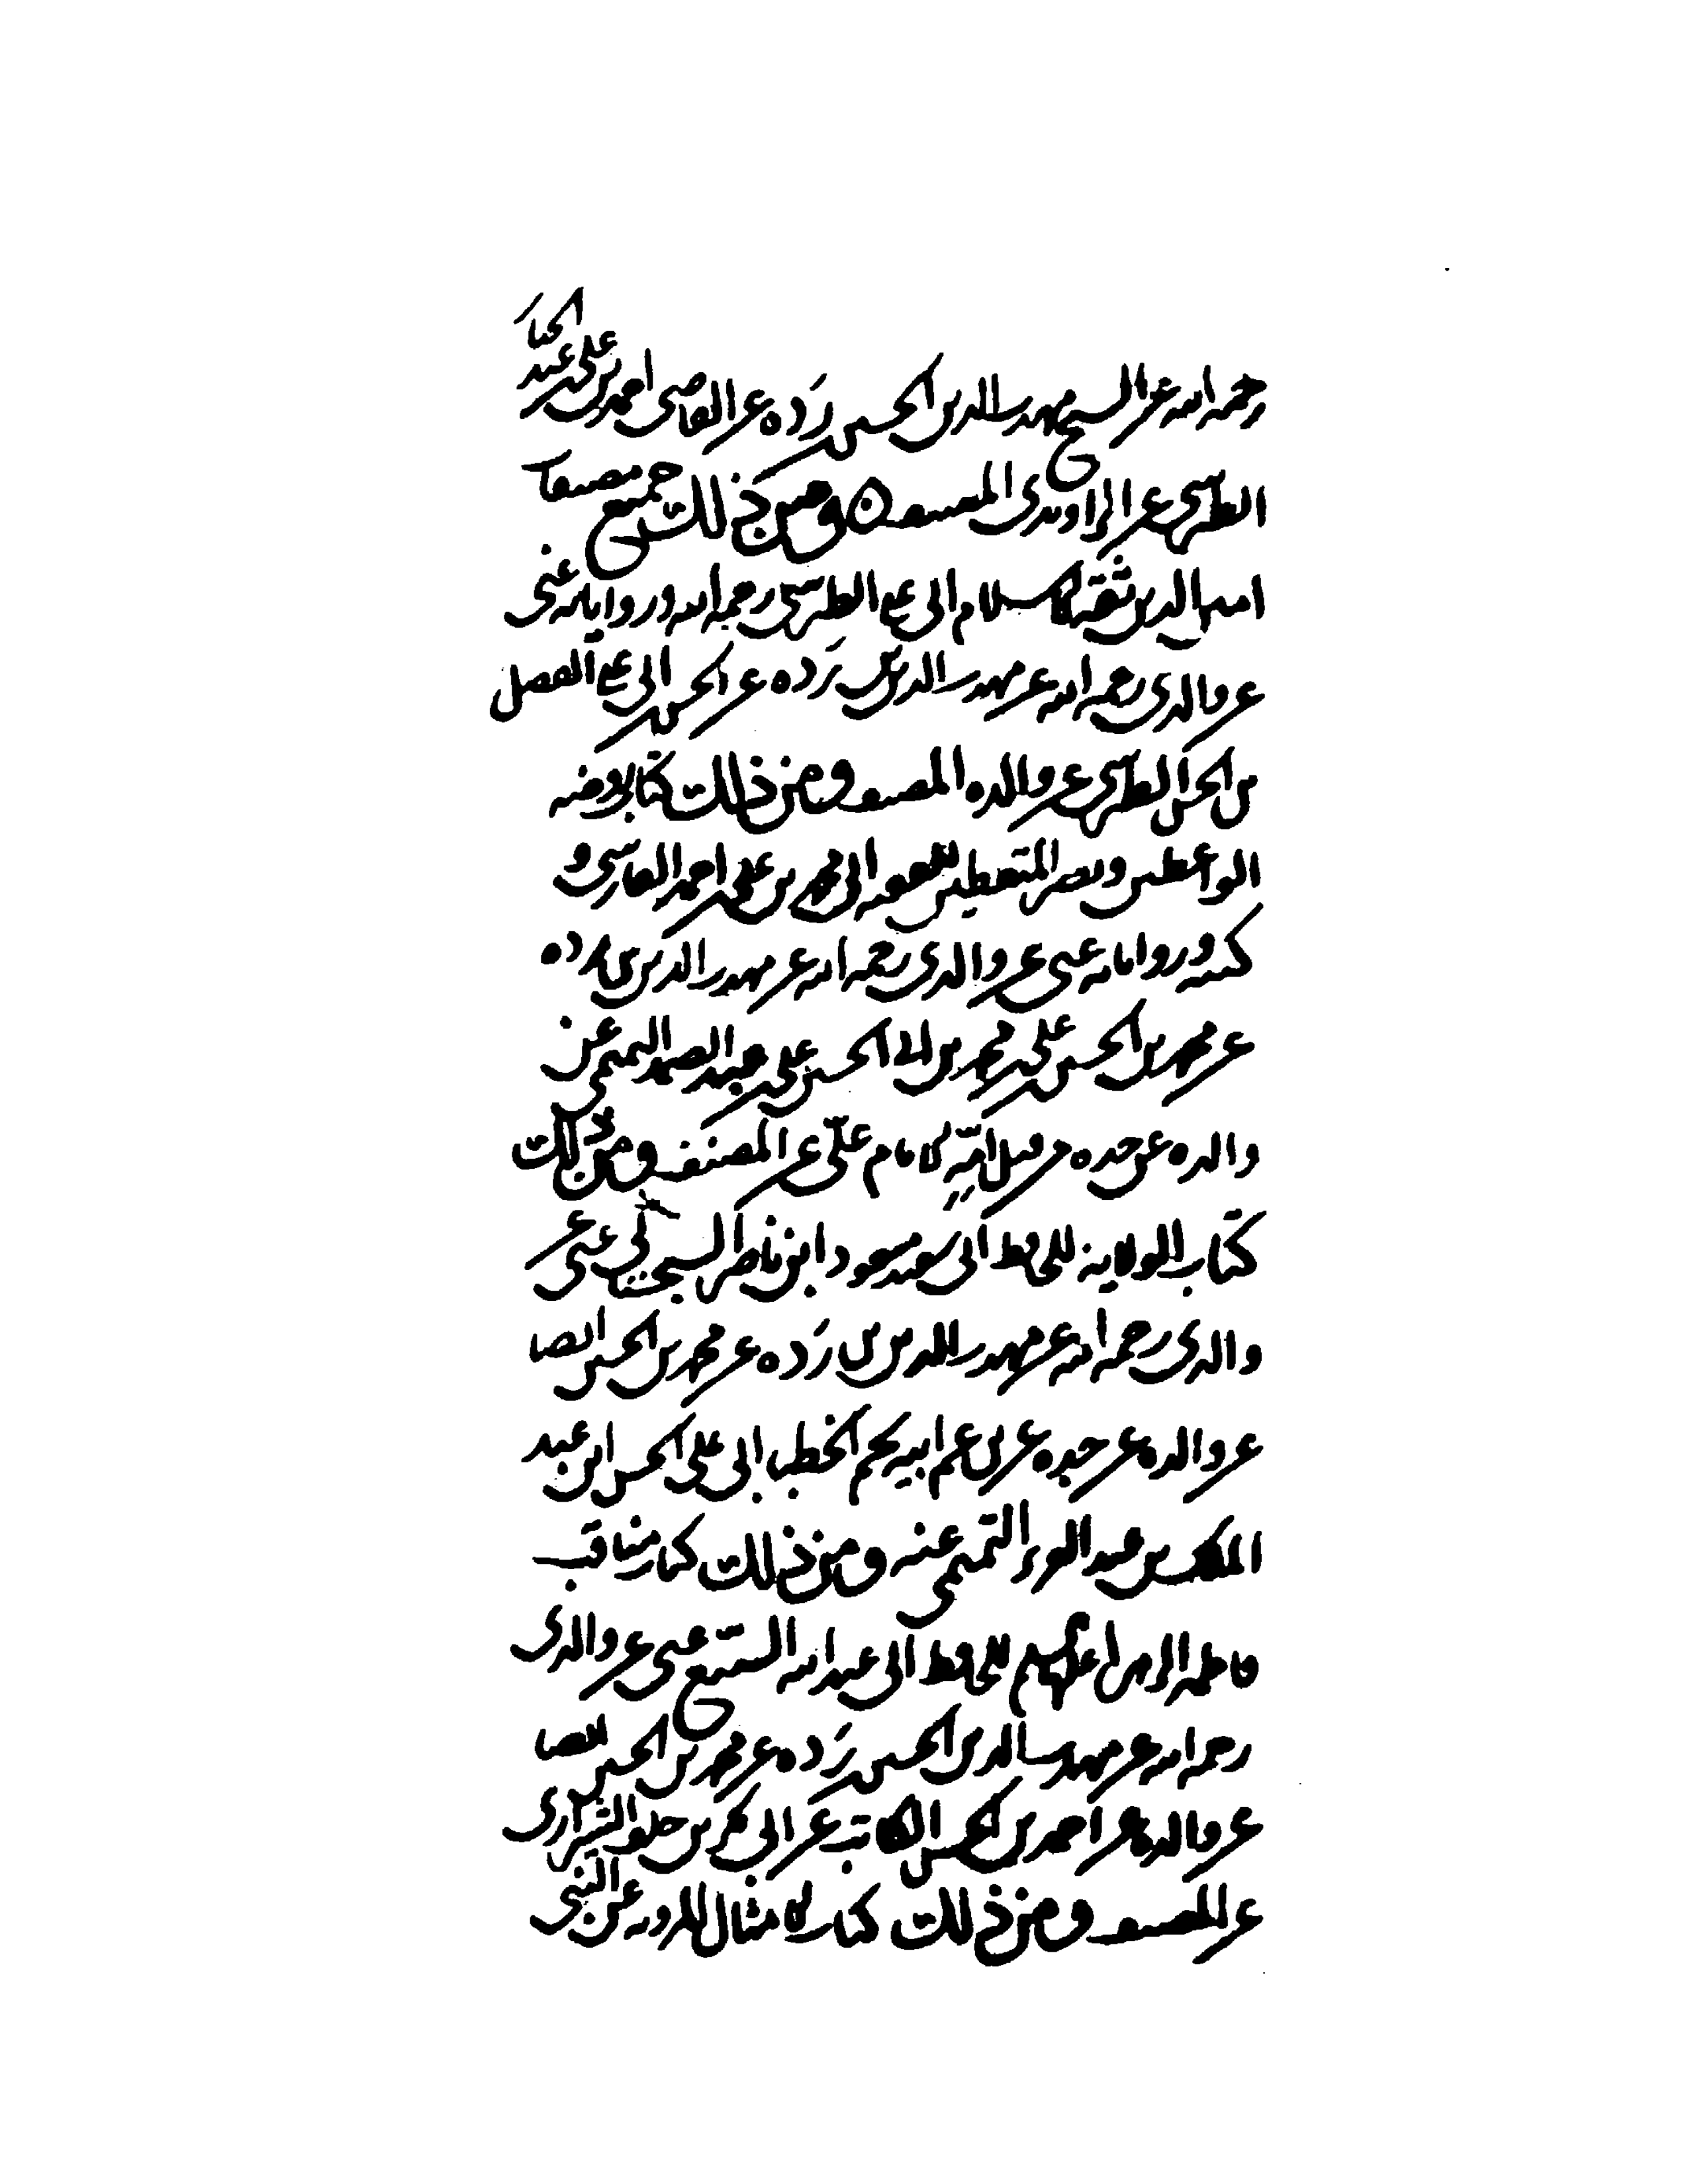 رحمه الله عن الشيخ مهذب الدين الحسين بن ردة عن القاضي احمد بن علي بن عبد الجبار
الطبرسي عن الراوندي المصنف ومن ذلك جميع مصنفات
امين الدين ثقة الاسلام ابي علي الطبرسي رحمه الله ورواياته عني
عن والدي رحمه الله عن مهذب الدين بن ردة عن الحسن بن ابي علي الفضل
بن الحسن الطبرسي عن والده المصنف ومن ذلك كتاب روضة
الواعظين وبصيرة المتعظين للفقيه ابي محمد بن علي بن احمد الفارسي و
كتبه ورواياته عني عن والدي رحمه الله عن مهذب الدين بن ردة
عن محمد بن الحسين بن علي بن محمد بن الحسن علي بن عبد الصمد التميمي عن
والده عن جده من قبل امه الامام علي عن المصنف ومن ذلك
كتاب الولاية للحافظ ابي سعيد مسعود ابن ناصر السجستاني عني عن
والدي رحمه الله عن مهذب الدين بن ردة عن محمد بن الحسين ايضا
عن والده عن جده عن ابن عم ابيه يحكم الخطيب ابي علي الحسن ابن عبد
الملك بن عبد العزيز التميمي عنه ومن ذلك كتاب مناقب
فاطمة الزهراء عليها السلام للحافظ ابي عبد الله البيع عني عن والدي
رحمه الله عن مهذب الدين الحسين بن ردة عن محمد بن الحسين ايضا
عن والده عن احمد بن الحسن الكاتب عن ابي بكر بن خلف الشيرازي
عن المصنف ومن ذلك كتاب الامثال المروية عن النبي